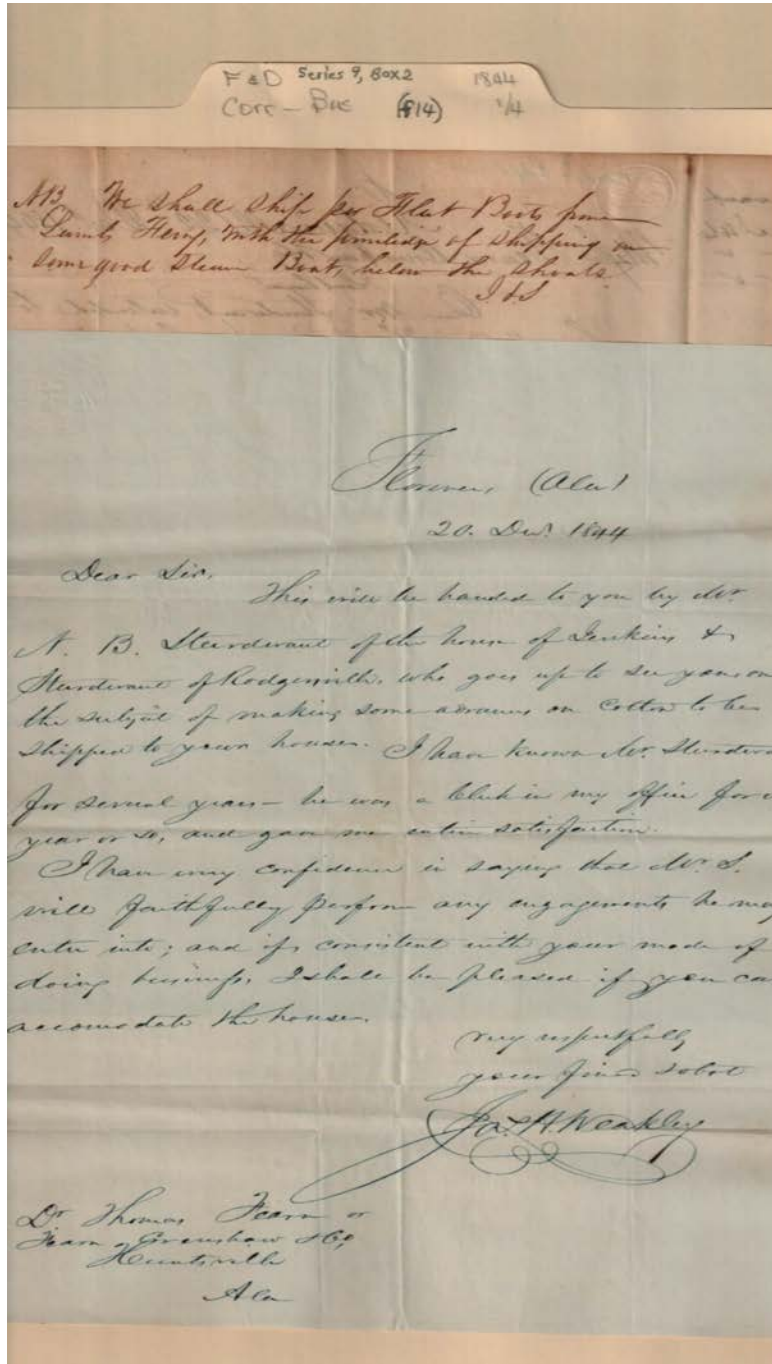 F & D Series 9, Box 2 1844
Corr - Bus (F14) 1/4
NB We shall ship per Flat Boats from
Lambs Ferry, with the priviledge of shipping on
some good Steam Boats below the shoals.
J & S
Florence, (Ala)
20. Decr. 1844
Dear Sir,
This will be handed to you by Mr.
N. B. Sturdevant of the house of Jenkins &
Sturdevant of Rodgersville, who goes up to see you on
the subject of making some advances on Cotton to be
shipped to your houses. I have known Mr. Sturdeva
for several years - he was a Clerk in my office for a
year or so, and gave me entire satisfaction.
I have every confidence in saying that Mr. S.
will faithfully perform any engagements he may
enter into; and if consistent with your mode of
doing business, I shall be pleased if you can
accomodate the houses.
very respectfully
your friend & obt
Jas. H. Weakley
Dr Thomas Fearn or
Fearn & Crenshaw & Co,
Huntsville
Ala